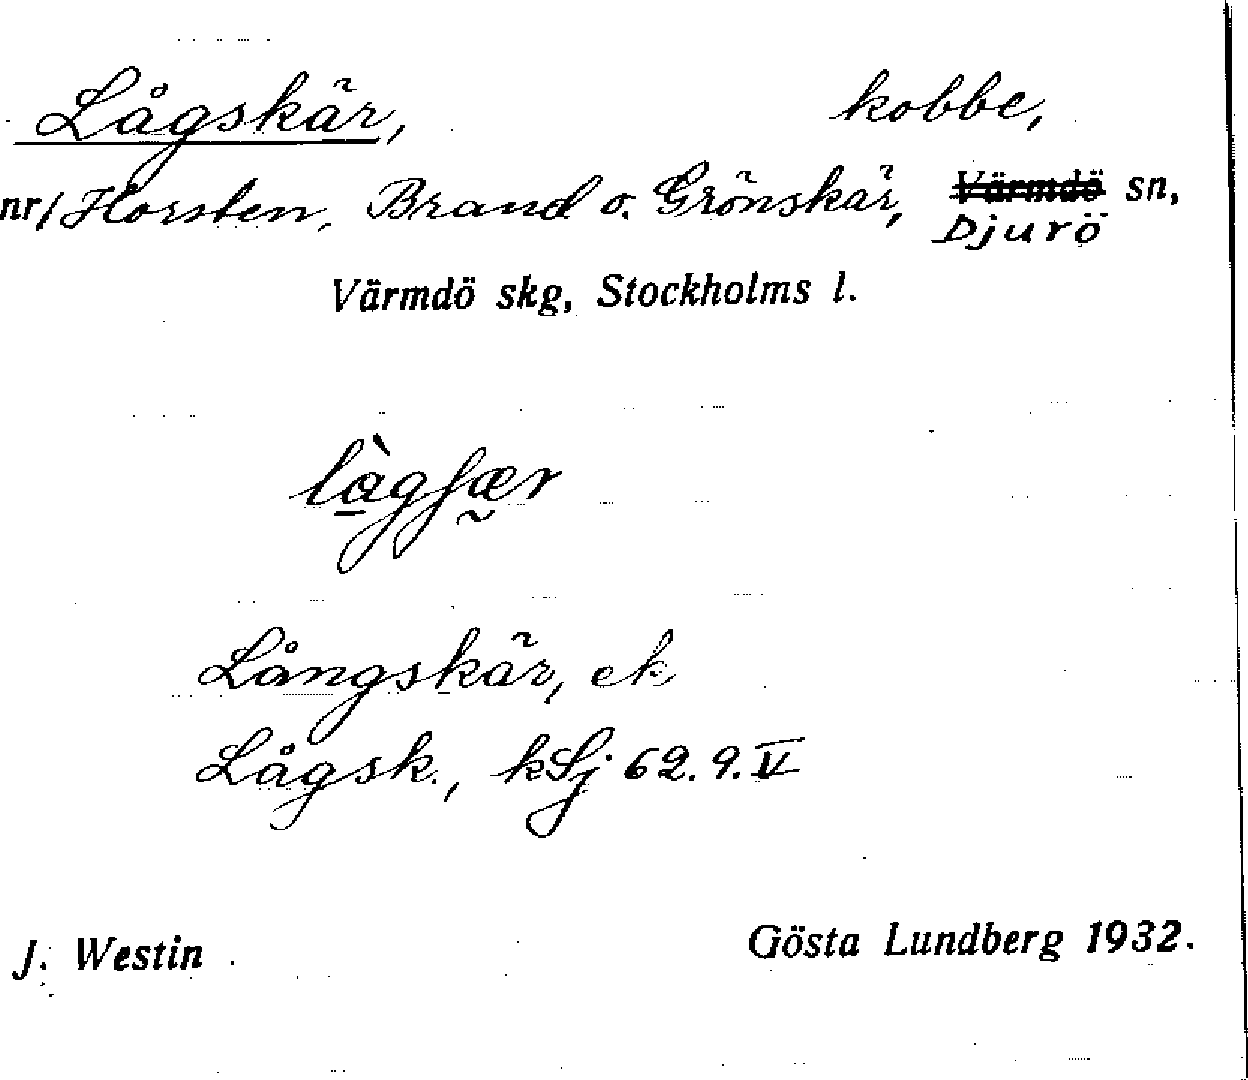 Lågskär, kobbe,
nr/Horsten, Brand o. Grönskär, Värmdö sn,
Djurö
Värmdö skg, Stockholms l.
làgʃær
Långskär, ek
Lågsk., kSj 62.9.V
J. Westin Gösta Lundberg 1932.